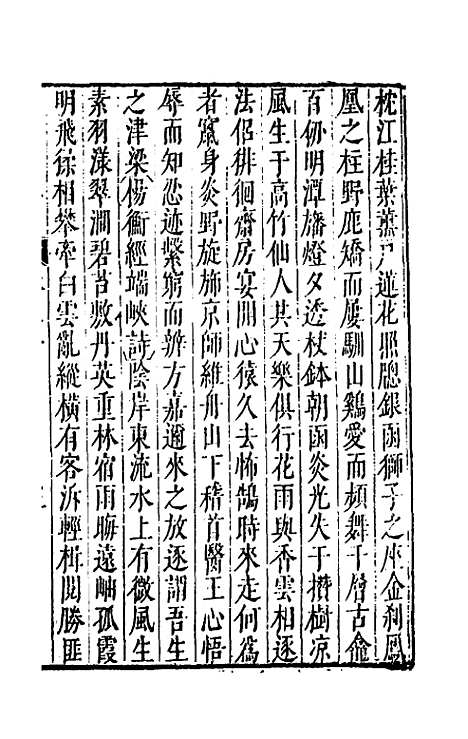 枕江桂葉薰戶蓮花照牕銀函獅子之座金刹鳳
凰之柱野鹿矯而屢馴山鷄愛而頻舞千層古龕
百仞明潭旛燈夕透杖鉢朝函炎光失于攢樹凉
風生于高竹仙人共天樂俱行花雨與香雲相逐
法侶徘徊齋房宴開心猿久去怖鴿時來走何爲
者竄身炎野旋旆京師維舟山下稽首醫王心悟
辱而知忍迹縈窮而辨方嘉邇來之放逐謂吾生
之津梁楊衡經端峽詩陰岸東流水上有微風生
素羽漾翠澗碧苔敷丹英重林宿雨晦遠岫孤霞
明飛猱相攀牽白雲亂縱橫有客泝輕楫閱勝匪